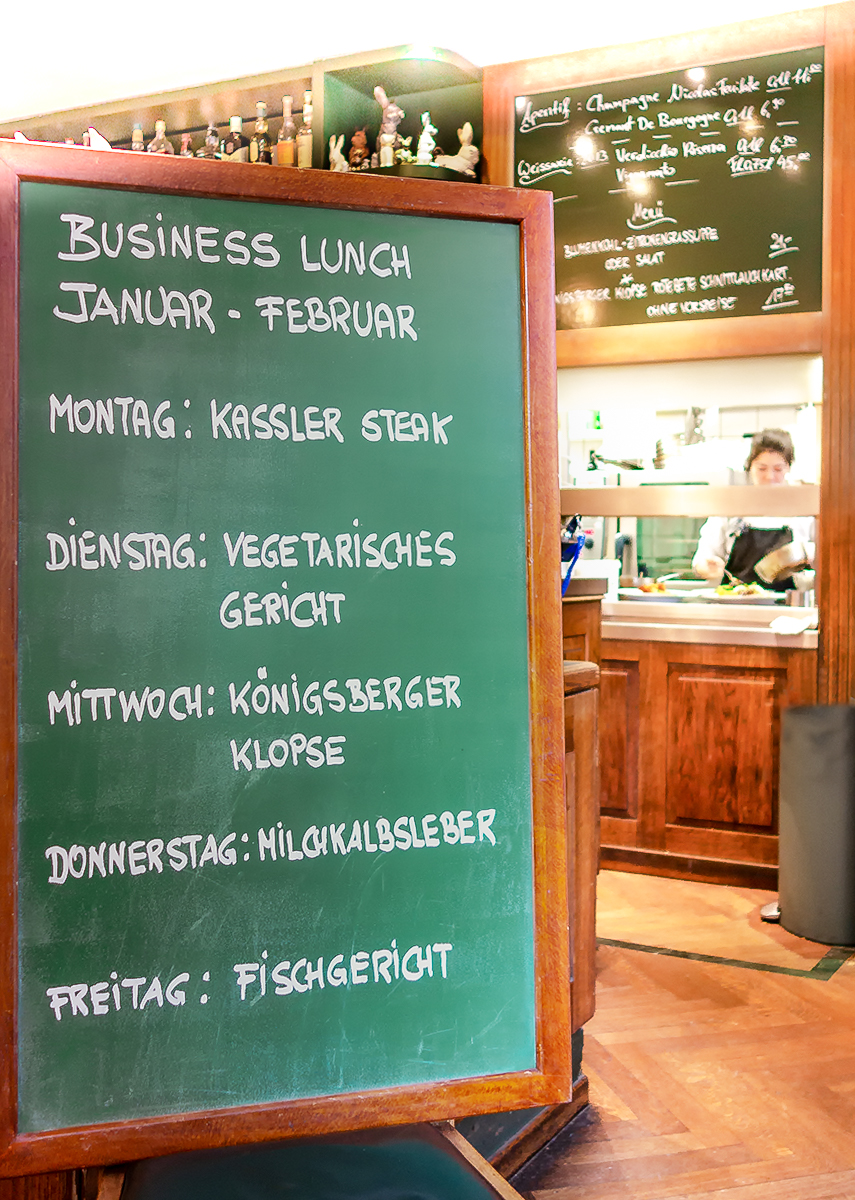 BUSINESS LUNCH
JANUAR - FEBRUAR
MONTAG: KASSLER STEAK
DIENSTAG: VEGETARISCHES
GERICHT
MITTWOCH: KÖNIGSBERGER
KLOPSE
DONNERSTAG: MILCHKALBSLEBER
FREITAG: FISCHGERICHT
Aperitif: Champagne Nicolas Feuillatte 0,1l 11,00
Cremant De Bourgogne 0,1l 6,50
Weisswein 2013 Verdicchio Riserva 0,1l 6,50
Fl 0,75l 45,00
Menü
BLUMENKOHL-ZITRONENGRASSUPPE
ODER SALAT 21,-
*
KÖNIGSBERGER KLOPSE ROTE BETE SCHNITTLAUCHKART.
OHNE VORSPEISE 17,50